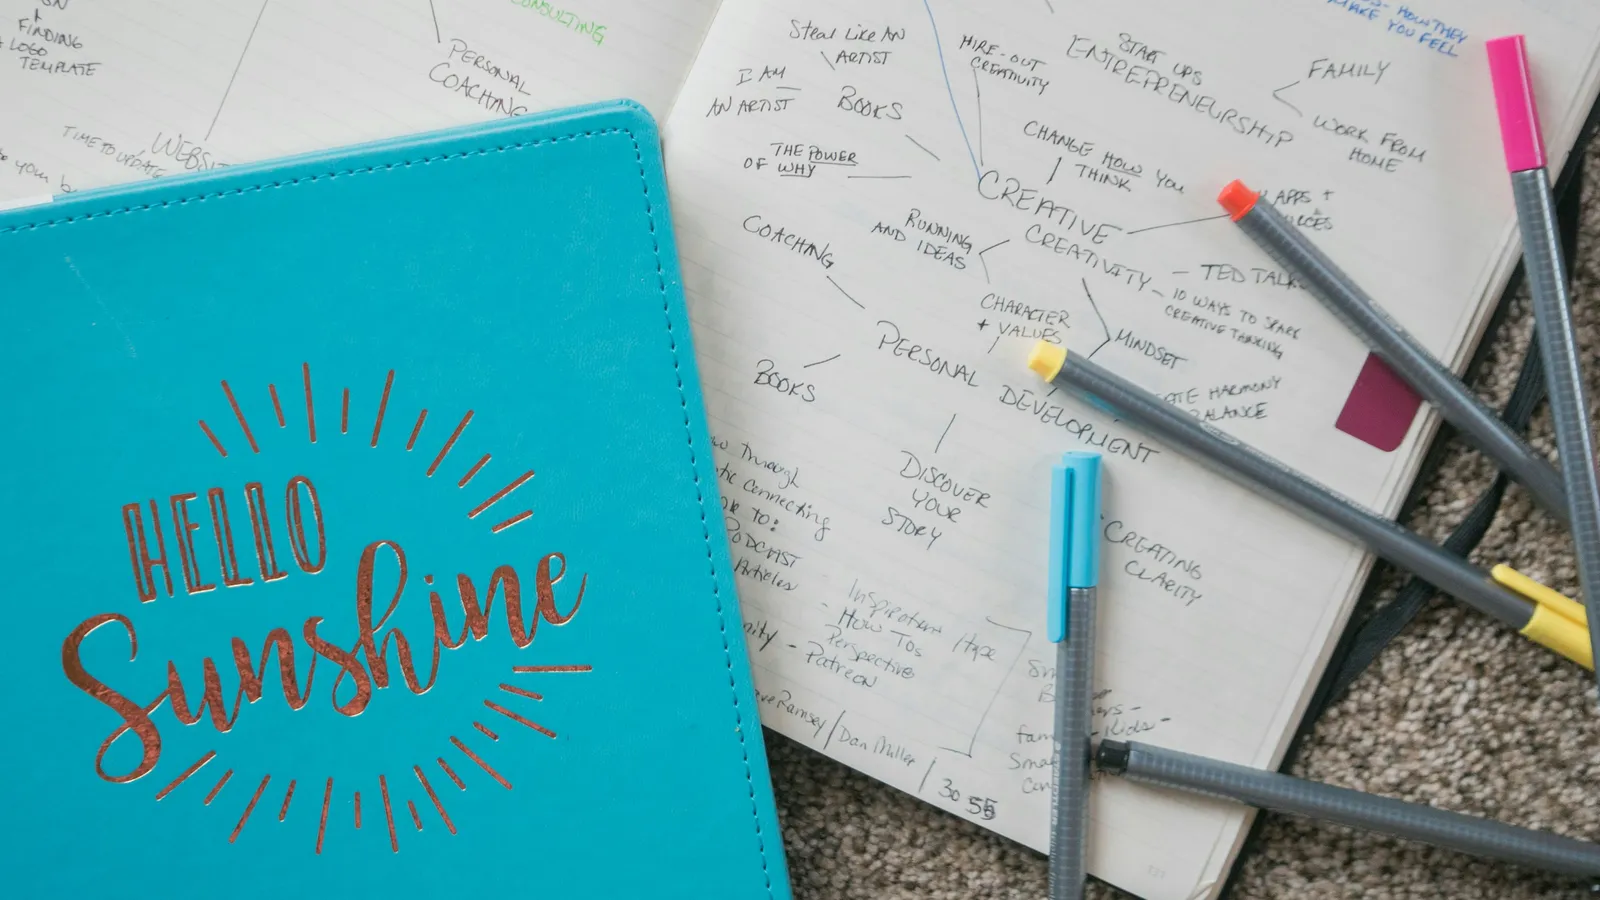 FINDING
LOGO
TEMPLATE
CONSULTING
PERSONAL
COACHING
TIME TO UPDATE
HELLO
Sunshine
Steal Like AN
ARTIST
I AM
AN ARTIST
BOOKS
THE POWER
OF WHY
HIRE-OUT
CREATIVITY
START UPS
ENTREPRENEURSHIP
FAMILY
WORK FROM
HOME
HOW THEY
MAKE YOU FEEL
CHANGE HOW YOU
THINK
CREATIVE
CREATIVITY
APPS +
RUNNING
AND IDEAS
TED TALK
10 WAYS TO SPARK
CREATIVE THINKING
MINDSET
HARMONY
COACHING
CHARACTER
+ VALUES
PERSONAL
DEVELOPMENT
BOOKS
DISCOVER
YOUR
STORY
CREATING
CLARITY
Through
Connecting
to:
PODCAST
Articles
Inspiration Hype
- How Tos
Perspective
- Patreon
Ramsey / Dan Miller / 30
Kids -